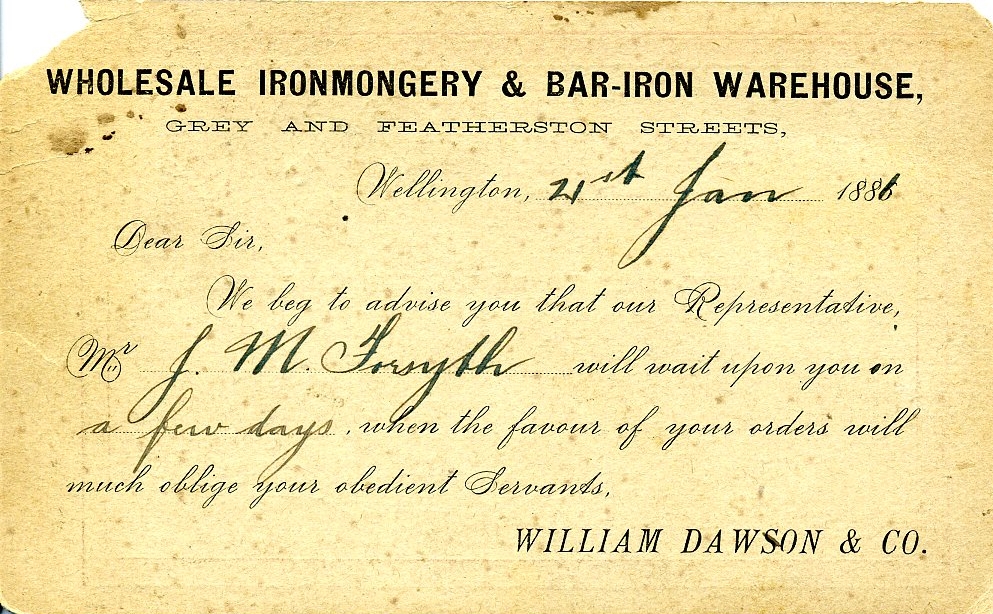 WHOLESALE IRONMONGERY & BAR-IRON WAREHOUSE,
GREY AND FEATHERSTON STREETS,
Wellington, 21st Jan 1886
Dear Sir,
We beg to advise you that our Representative,
Mr J. M. Forsyth will wait upon you on
a few days, when the favour of your orders will
much oblige your obedient Servants,
WILLIAM DAWSON & CO.